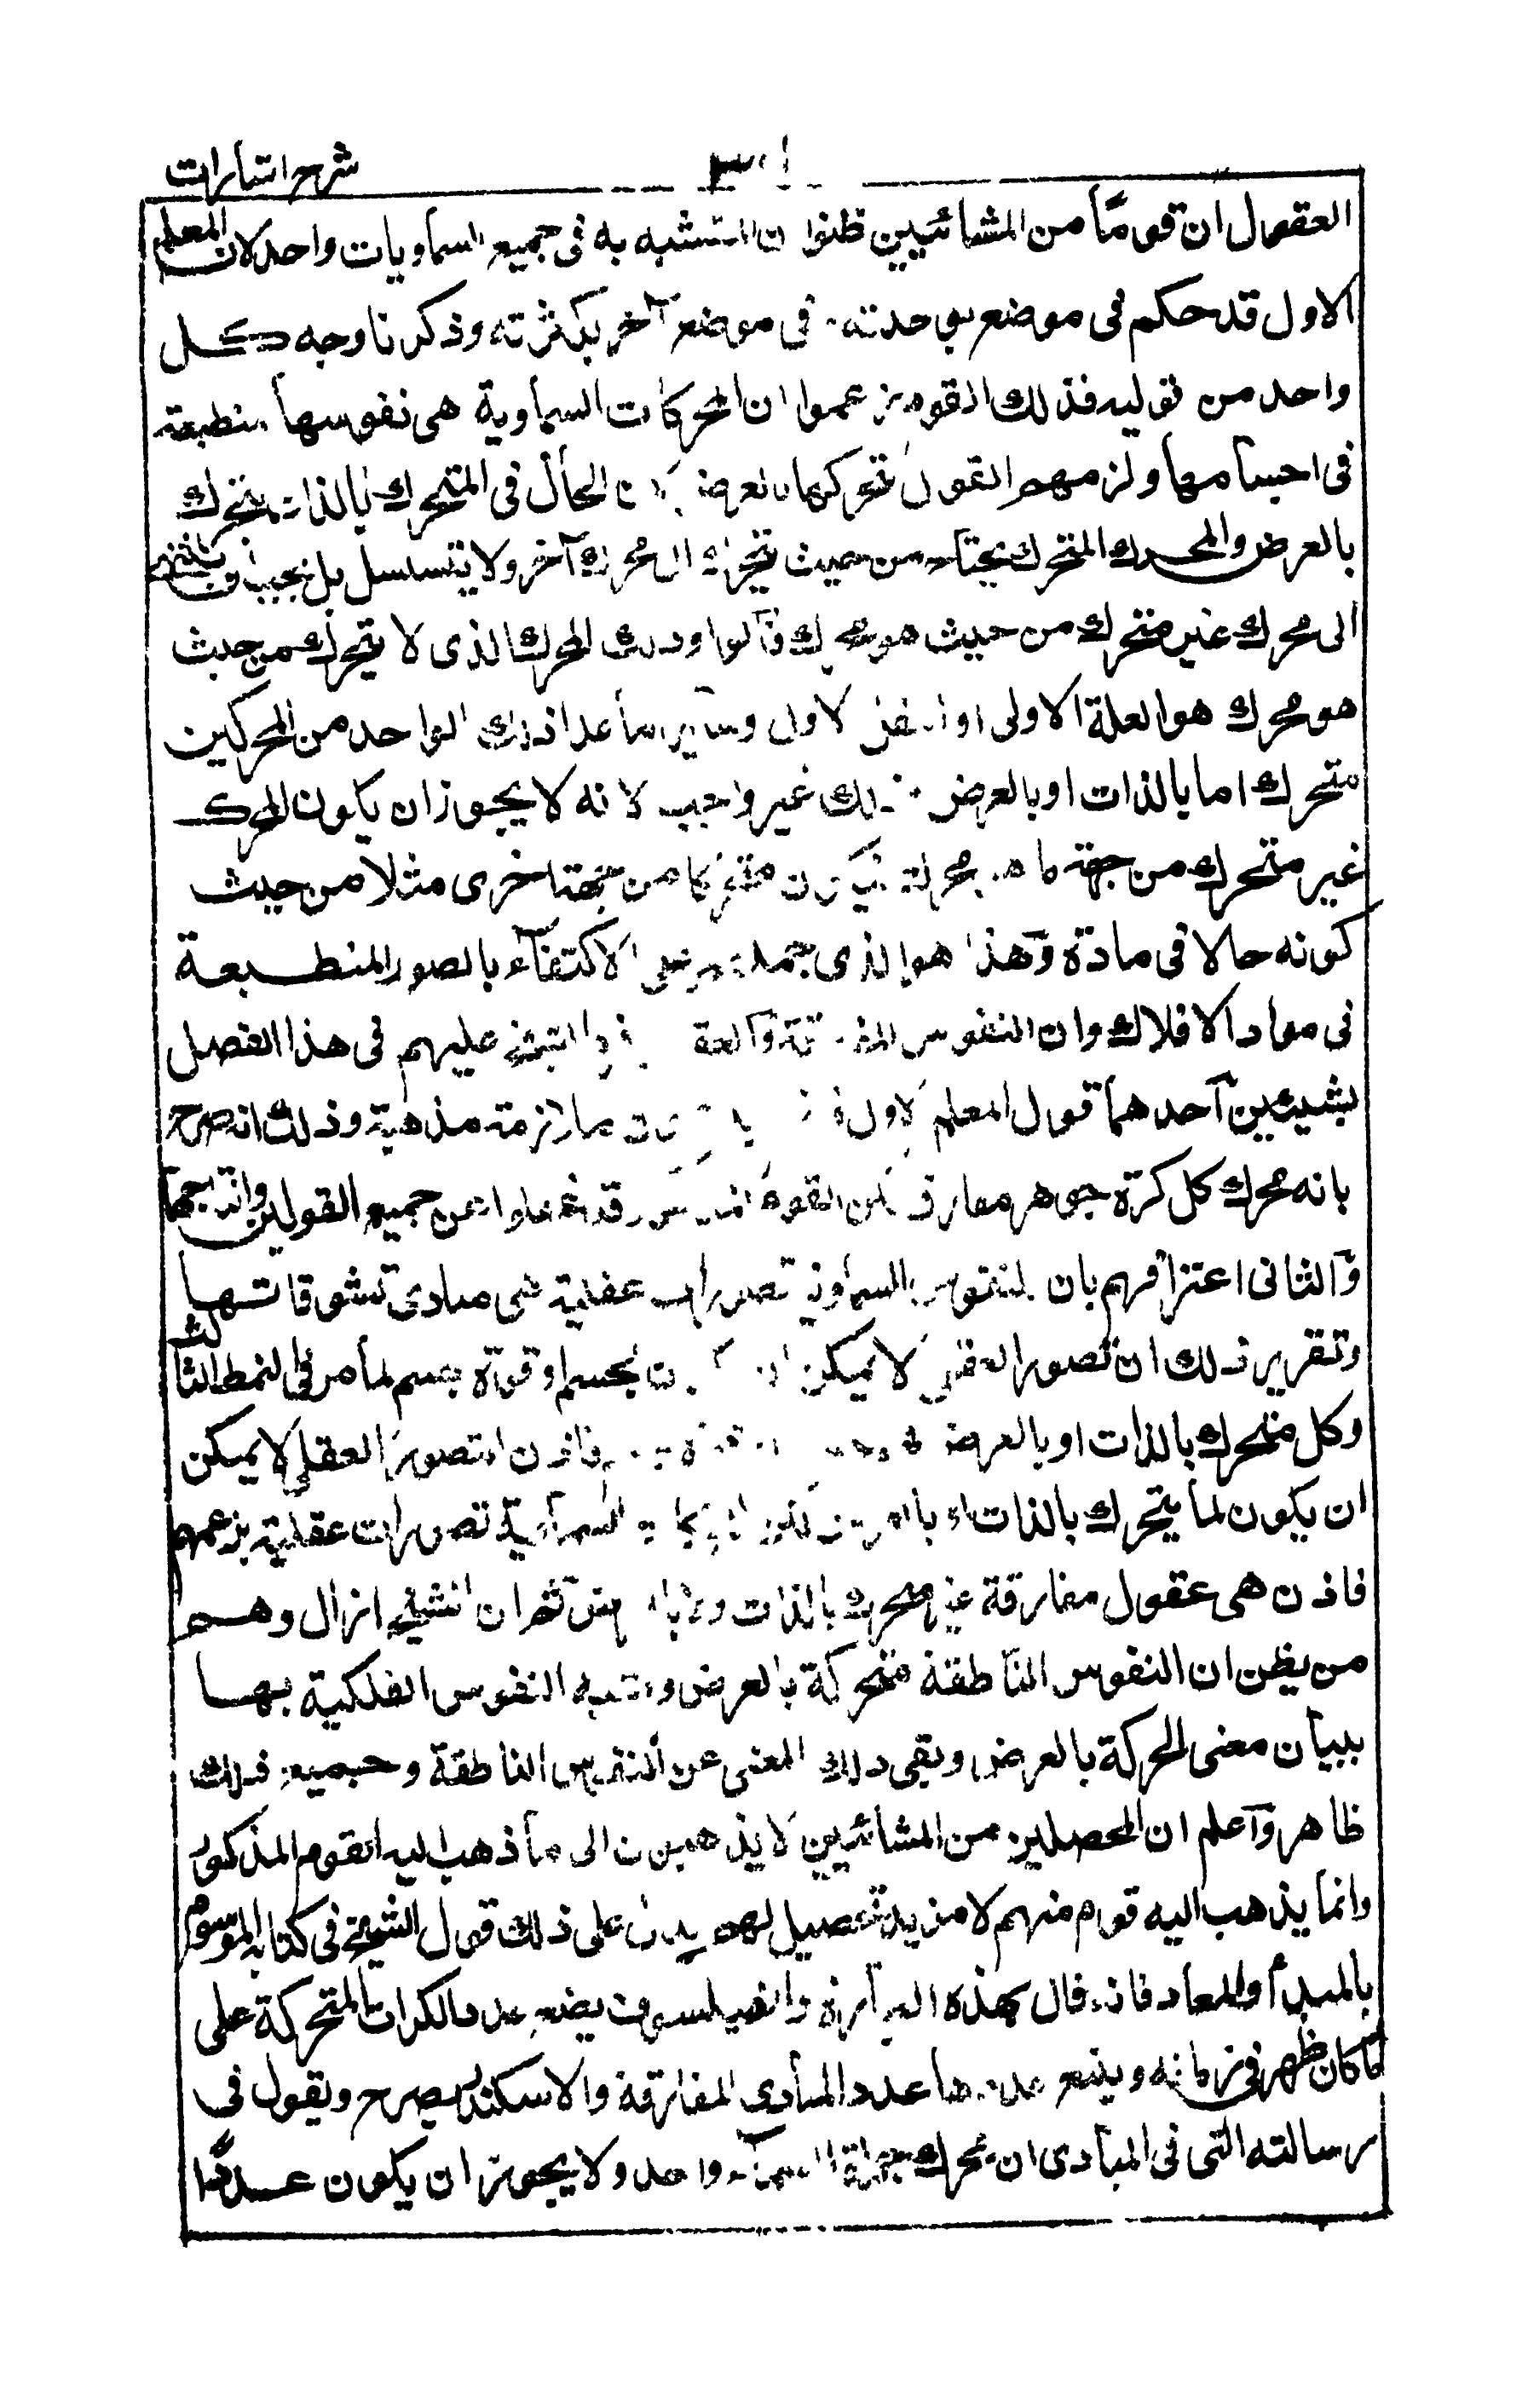 شرح اشارات
العقول ان قومًا من المشائيين ظنوا ان المتشبه به فى جميع السماويات واحد لان المعلم
الاول قد حكم فى موضع بوحدته فى موضع آخر بكثرته وذكرنا وجه كل
واحد من قوليه فذلك القوم زعموا ان المحركات السماوية هى نفوسها منطبعة
فى اجسامها ولزمهم القول بتحركها بالعرض لان الحال فى المتحرك بالذات يتحرك
بالعرض والمحرك المتحرك يحتاج من حيث يتحرك الى محرك آخر ولا يتسلسل بل يجب ان ينتهى
الى محرك غير متحرك من حيث هو محرك قالوا وذلك المحرك الذى لا يتحرك من حيث
هو محرك هو العلة الاولى او العقل الاول وساير ما عدا ذلك الواحد من المحركين
متحرك اما بالذات او بالعرض وذلك غير واجب لانه لا يجوز ان يكون المحرك
غير متحرك من جهة ما هو محرك فيكون متحركا من جهة اخرى مثلا من حيث
كونه حالا فى مادة وهذا هو الذى حملهم على الاكتفاء بالصور المنطبعة
فى مواد الافلاك وان النفوس المفارقة والعقول الشيخ عليهم فى هذا الفصل
بشيئين احدهما قول المعلم الاول ملازمة مذهبه وذلك انه صرح
بانه محرك كل كرة جوهر مفارق لكن القوم قد غفلوا عن جميع القولين واندرجهما
والثانى اعترافهم بان لنفوس السماوية تصورات عقلية هى مبادى تشوقاتها
وتقرير ذلك ان تصور العقلى لا يمكن ان يكون بجسم او قوة جسم لما مر فى النمط الثالث
وكل متحرك بالذات او بالعرض فهو فاذن التصور العقلى لا يمكن
ان يكون لما يتحرك بالذات او بالعرض لكن السماوية تصورات عقلية بزعمهم
فاذن هى عقول مفارقة غير متحركة بالذات ولا بالعرض ثم ان الشيخ ازال وهم
من يظن ان النفوس الناطقة متحركة بالعرض وتشبه النفوس الفلكية بها
ببيان معنى الحركة بالعرض ونفى ذلك المعنى عن النفوس الناطقة وجميع ذلك
ظاهر واعلم ان المحصلين من المشائيين لا يذهبون الى ما ذهب اليه القوم المذكور
وانما يذهب اليه قوم منهم لا مزيد تحصيل لهم يدل على ذلك قول الشيخ فى كتابه الموسوم
بالمبدأ والمعاد فانه قال بهذه العبارة والفيلسوف يضع عدد الكرات المتحركة على
ما كان ظهر فى زمانه ويتبع عددها عدد المبادى المفارقة والاسكندر يصرح ويقول فى
رسالته التى فى المبادى ان محرك جملة السماء واحد ولا يجوز ان يكون عددًا